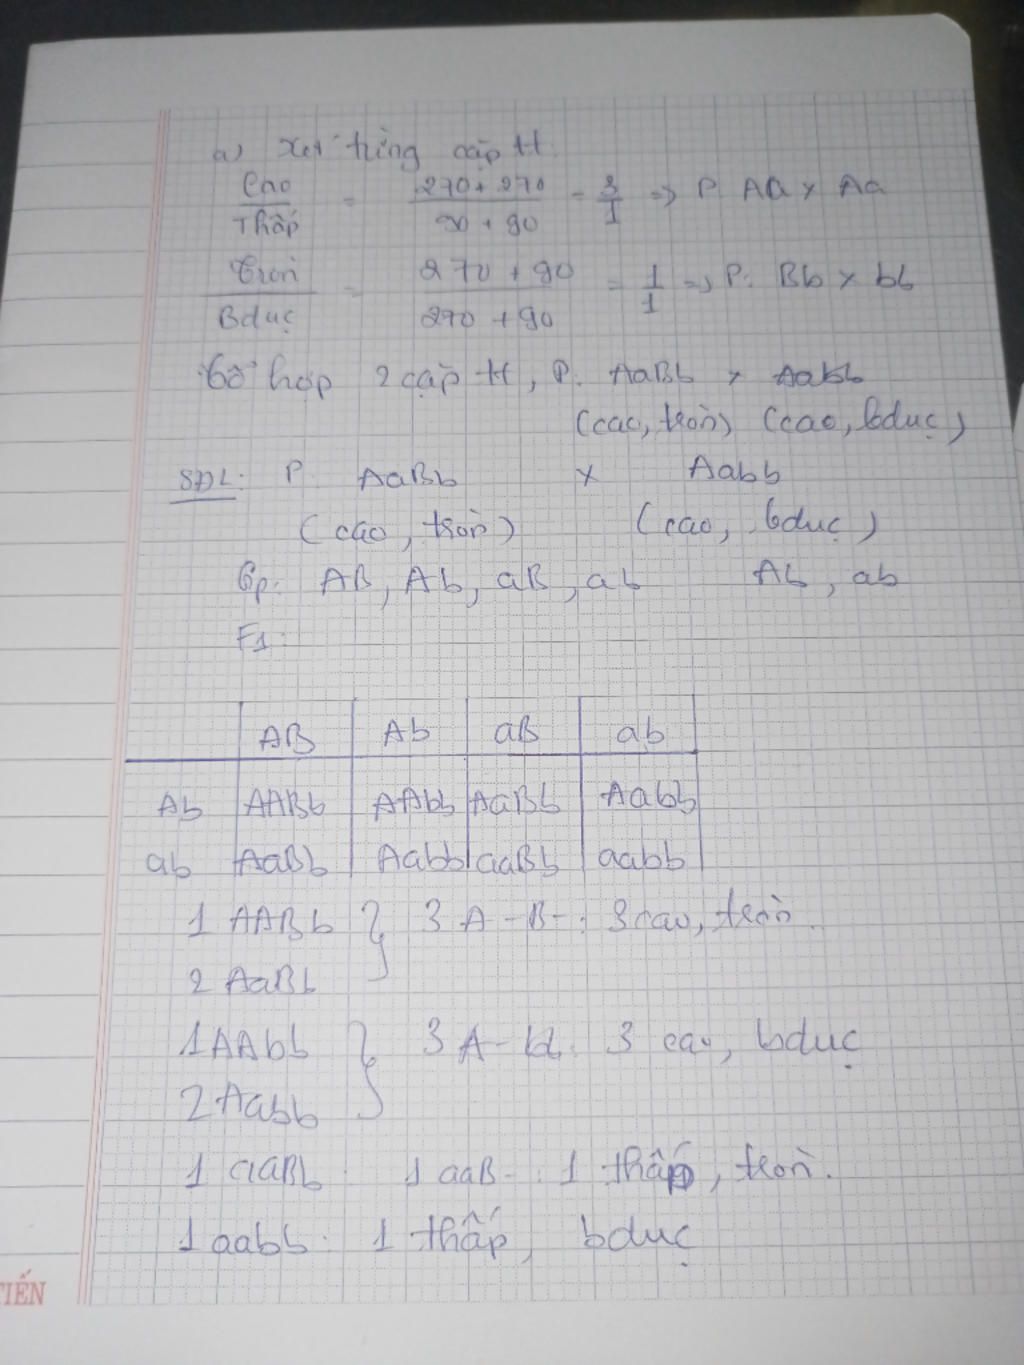 a) Xét từng cặp tt.
Cao / Thấp = 270 + 270 / 90 + 90 = 3 / 1 => P Aa x Aa
Tròn / Bdục = 270 + 90 / 270 + 90 = 1 / 1 => P: Bb x bb
Tổ hợp 2 cặp tt, P: AaBb x Aabb
(cao, tròn) (cao, bdục)
SĐL: P AaBb x Aabb
(cao, tròn) (cao, bdục)
Gp: AB, Ab, aB, ab Ab, ab
F1:
AB Ab aB ab
Ab AABb AAbb AaBb Aabb
ab AaBb Aabb aaBb aabb
1 AABb } 3 A-B-: 3 cao, tròn.
2 AaBb
1 AAbb } 3 A-bb: 3 cao, bdục
2 Aabb
1 aaBb 1 aaB-: 1 thấp, tròn.
1 aabb: 1 thấp, bdục
TIẾN